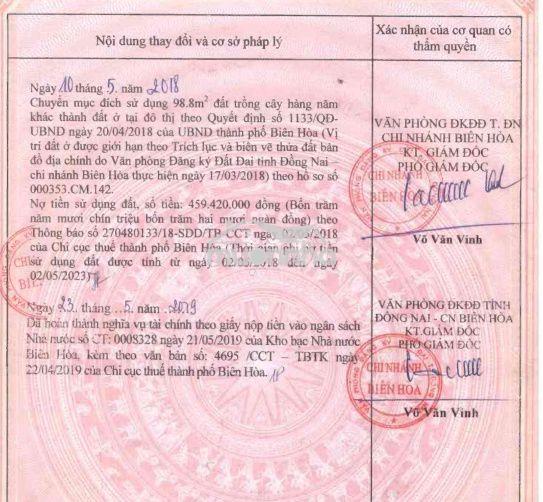 Nội dung thay đổi và cơ sở pháp lý
Xác nhận của cơ quan có
thẩm quyền
Ngày 10 tháng 5. năm 2018
Chuyển mục đích sử dụng 98.8m² đất trồng cây hàng năm
khác thành đất ở tại đô thị theo Quyết định số 1133/QĐ-
UBND ngày 20/04/2018 của UBND thành phố Biên Hòa (Vị
trí đất ở được giới hạn theo Trích lục và biên vẽ thửa đất bản
đồ địa chính do Văn phòng Đăng ký Đất Đai tỉnh Đồng Nai –
chi nhánh Biên Hòa thực hiện ngày 17/03/2018) theo hồ sơ số
000353.CM.142.
Nợ tiền sử dụng đất, số tiền: 459.420.000 đồng (Bốn trăm
năm mươi chín triệu bốn trăm hai mươi ngàn đồng) theo
Thông báo số 270480133/18-SDD/TB-CCT ngày 02/05/2018
của Chi cục thuế thành phố Biên Hòa (Thời gian ghi nợ tiền
sử dụng đất được tính từ ngày 02/05/2018 đến ngày
02/05/2023)
VĂN PHÒNG ĐKĐĐ T. ĐN
CHI NHÁNH BIÊN HÒA
KT. GIÁM ĐỐC
PHÓ GIÁM ĐỐC
CHI NHÁNH
BIÊN HÒA
Võ Văn Vinh
CHI
BIÊN
Ngày 23. tháng. 5. năm. 2019
Đã hoàn thành nghĩa vụ tài chính theo giấy nộp tiền vào ngân sách
Nhà nước số CT: 0008328 ngày 21/05/2019 của Kho bạc Nhà nước
Biên Hòa, kèm theo văn bản số: 4695 /CCT – TBTK ngày
22/04/2019 của Chi cục thuế thành phố Biên Hòa.
VĂN PHÒNG ĐKĐĐ TỈNH
ĐỒNG NAI - CN BIÊN HÒA
KT.GIÁM ĐỐC
PHÓ GIÁM ĐỐC
CHI NHÁNH
BIÊN HÒA
Võ Văn Vinh